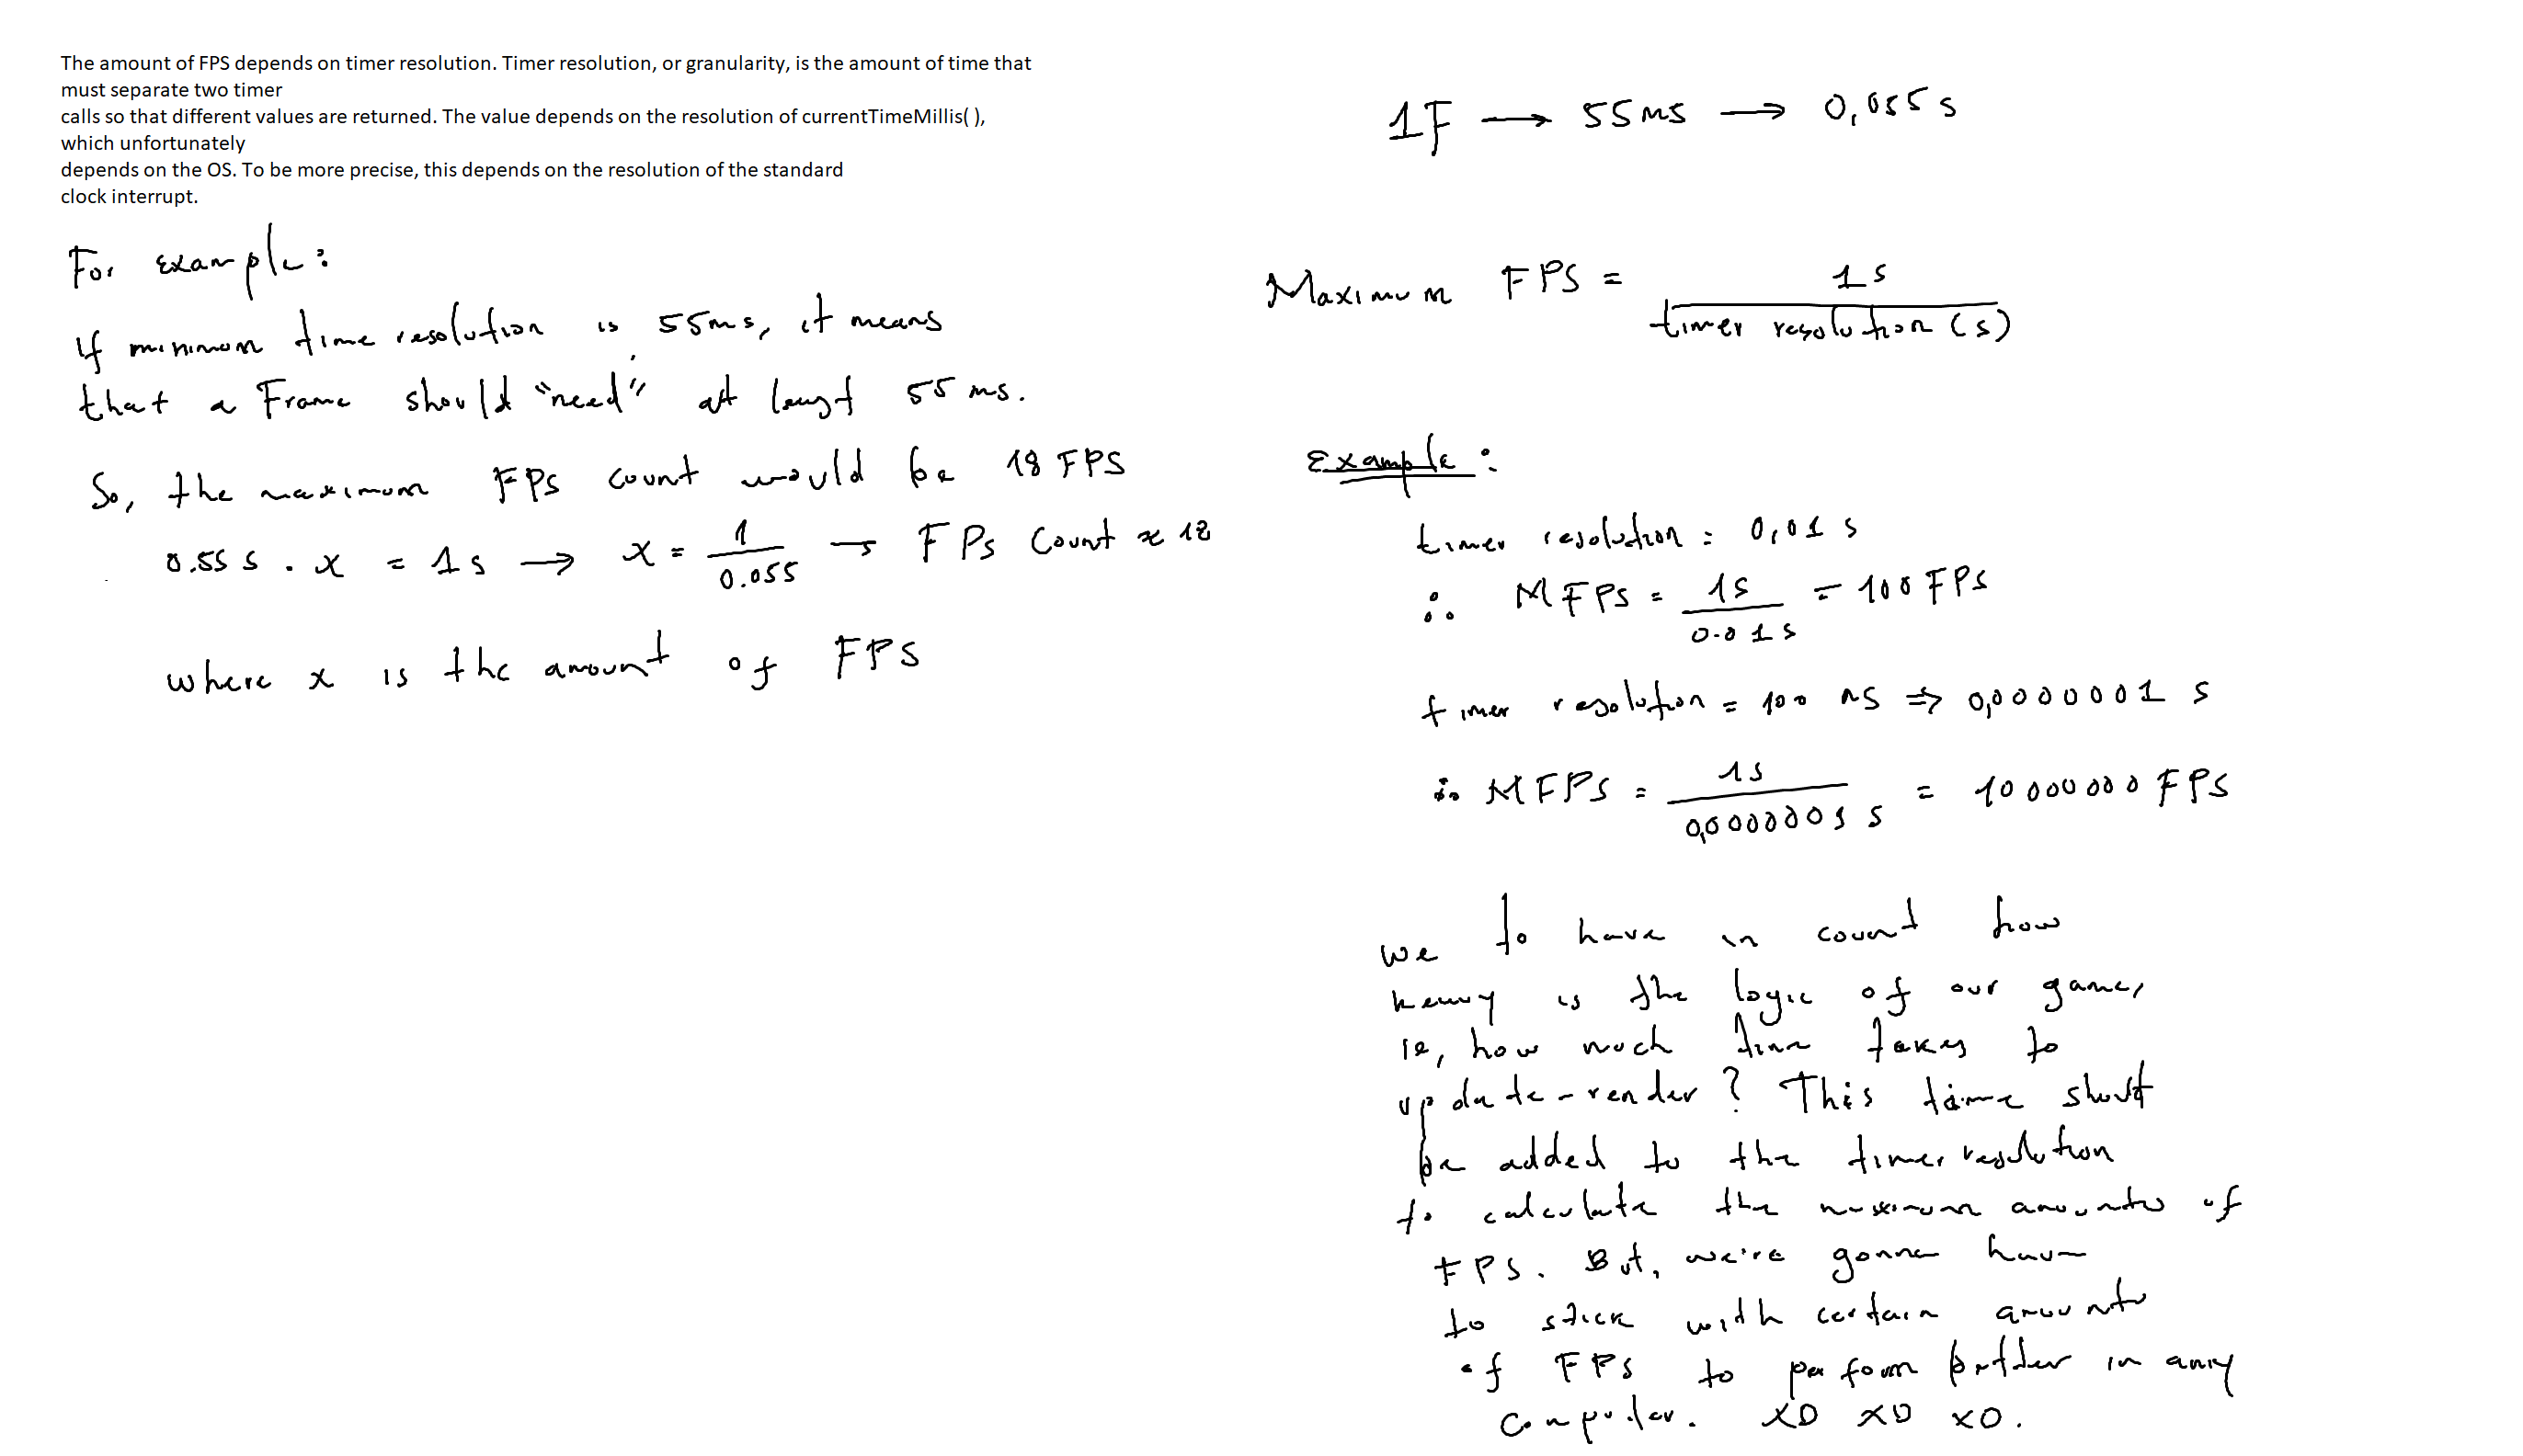 The amount of FPS depends on timer resolution. Timer resolution, or granularity, is the amount of time that
must separate two timer
calls so that different values are returned. The value depends on the resolution of currentTimeMillis( ),
which unfortunately
depends on the OS. To be more precise, this depends on the resolution of the standard
clock interrupt.
For example:
If minimum time resolution is 55ms, it means
that a Frame should "need" at least 55 ms.
So, the maximum FPS count would be 18 FPS
0.55 s . x = 1 s → x = 1/0.055 → FPS Count ≈ 18
where x is the amount of FPS
1F → 55ms → 0,055 s
Maximum FPS = 1 s / timer resolution (s)
Example:
timer resolution = 0,01 s
∴ MFPS = 1s / 0.01 s = 100 FPS
timer resolution = 100 ns ⇒ 0,0000001 s
∴ MFPS = 1s / 0,0000001 s = 10000000 FPS
we to have in count how
heavy is the logic of our game,
ie, how much time takes to
update-render? This time should
be added to the timer resolution
to calculate the maximum amounts of
FPS. But, we're gonna have
to stick with certain amount
of FPS to perform better in any
computer. XD XD XD.